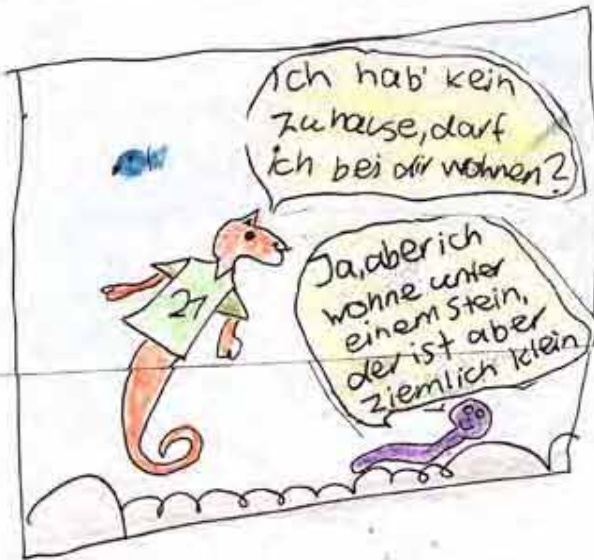 Ich hab' kein
zuhause, darf
ich bei dir wohnen?
Ja, aber ich
wohne unter
einem Stein,
der ist aber
ziemlich klein
21